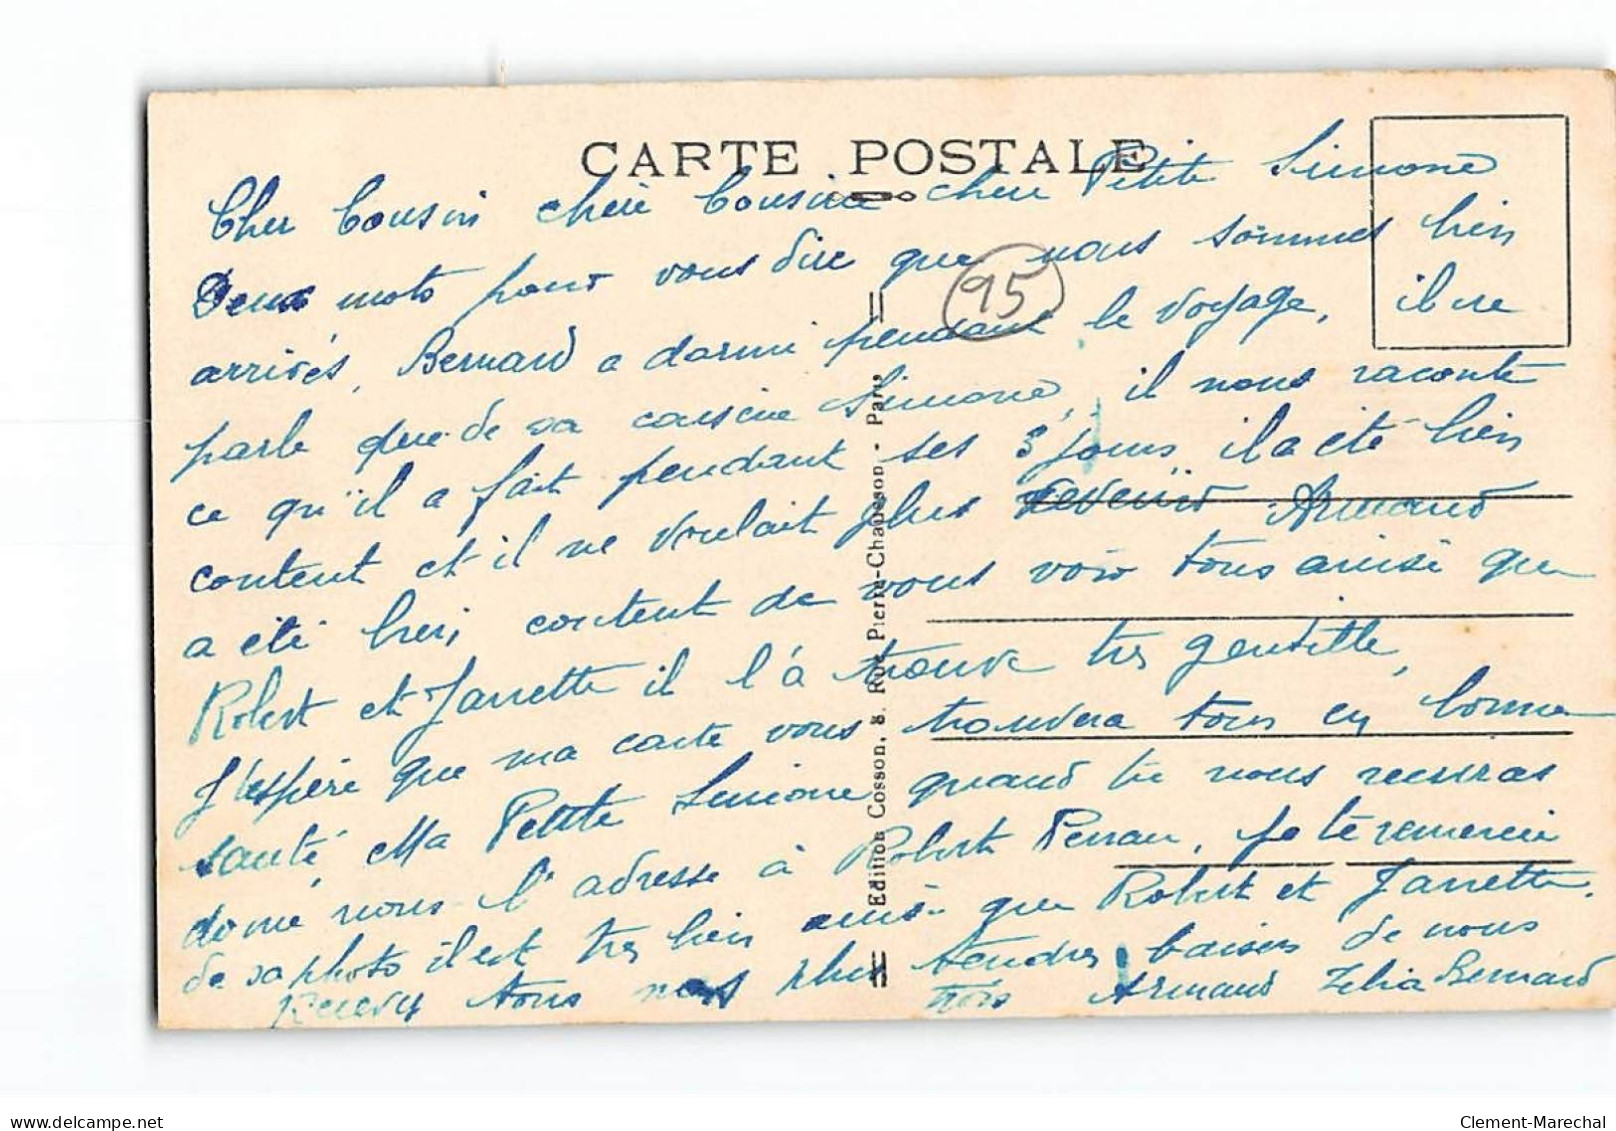 CARTE POSTALE
Cher Cousin chère Cousine chere Petite Simone
Deux mots pour vous dire que nous sommes bien
95
arrivés, Bernard a dormi pendant le voyage, il ne
parle que de sa cousine Simone, il nous raconte
ce qu'il a fait pendant ses 3 jours, il a été bien
content et il ne voulait plus revenir Armand
a été bien content de vous voir tous ainsi que
Robert et Janette il l'à trouve tres gentille,
J'espère que ma carte vous trouvera tous en bonne
santé, Ma Petite Simone quand tu nous
donne nous l'adresse à Robert Perrau, je te remercie
de sa photo il est tres bien ainsi que Robert et Janette.
Recevez tous nos plus tendres baisers de nous
trois Armand Zelia Bernard
Edition Cosson, 8, Rue Pierre-Chausson - Paris
delcampe.net
Clement-Marechal